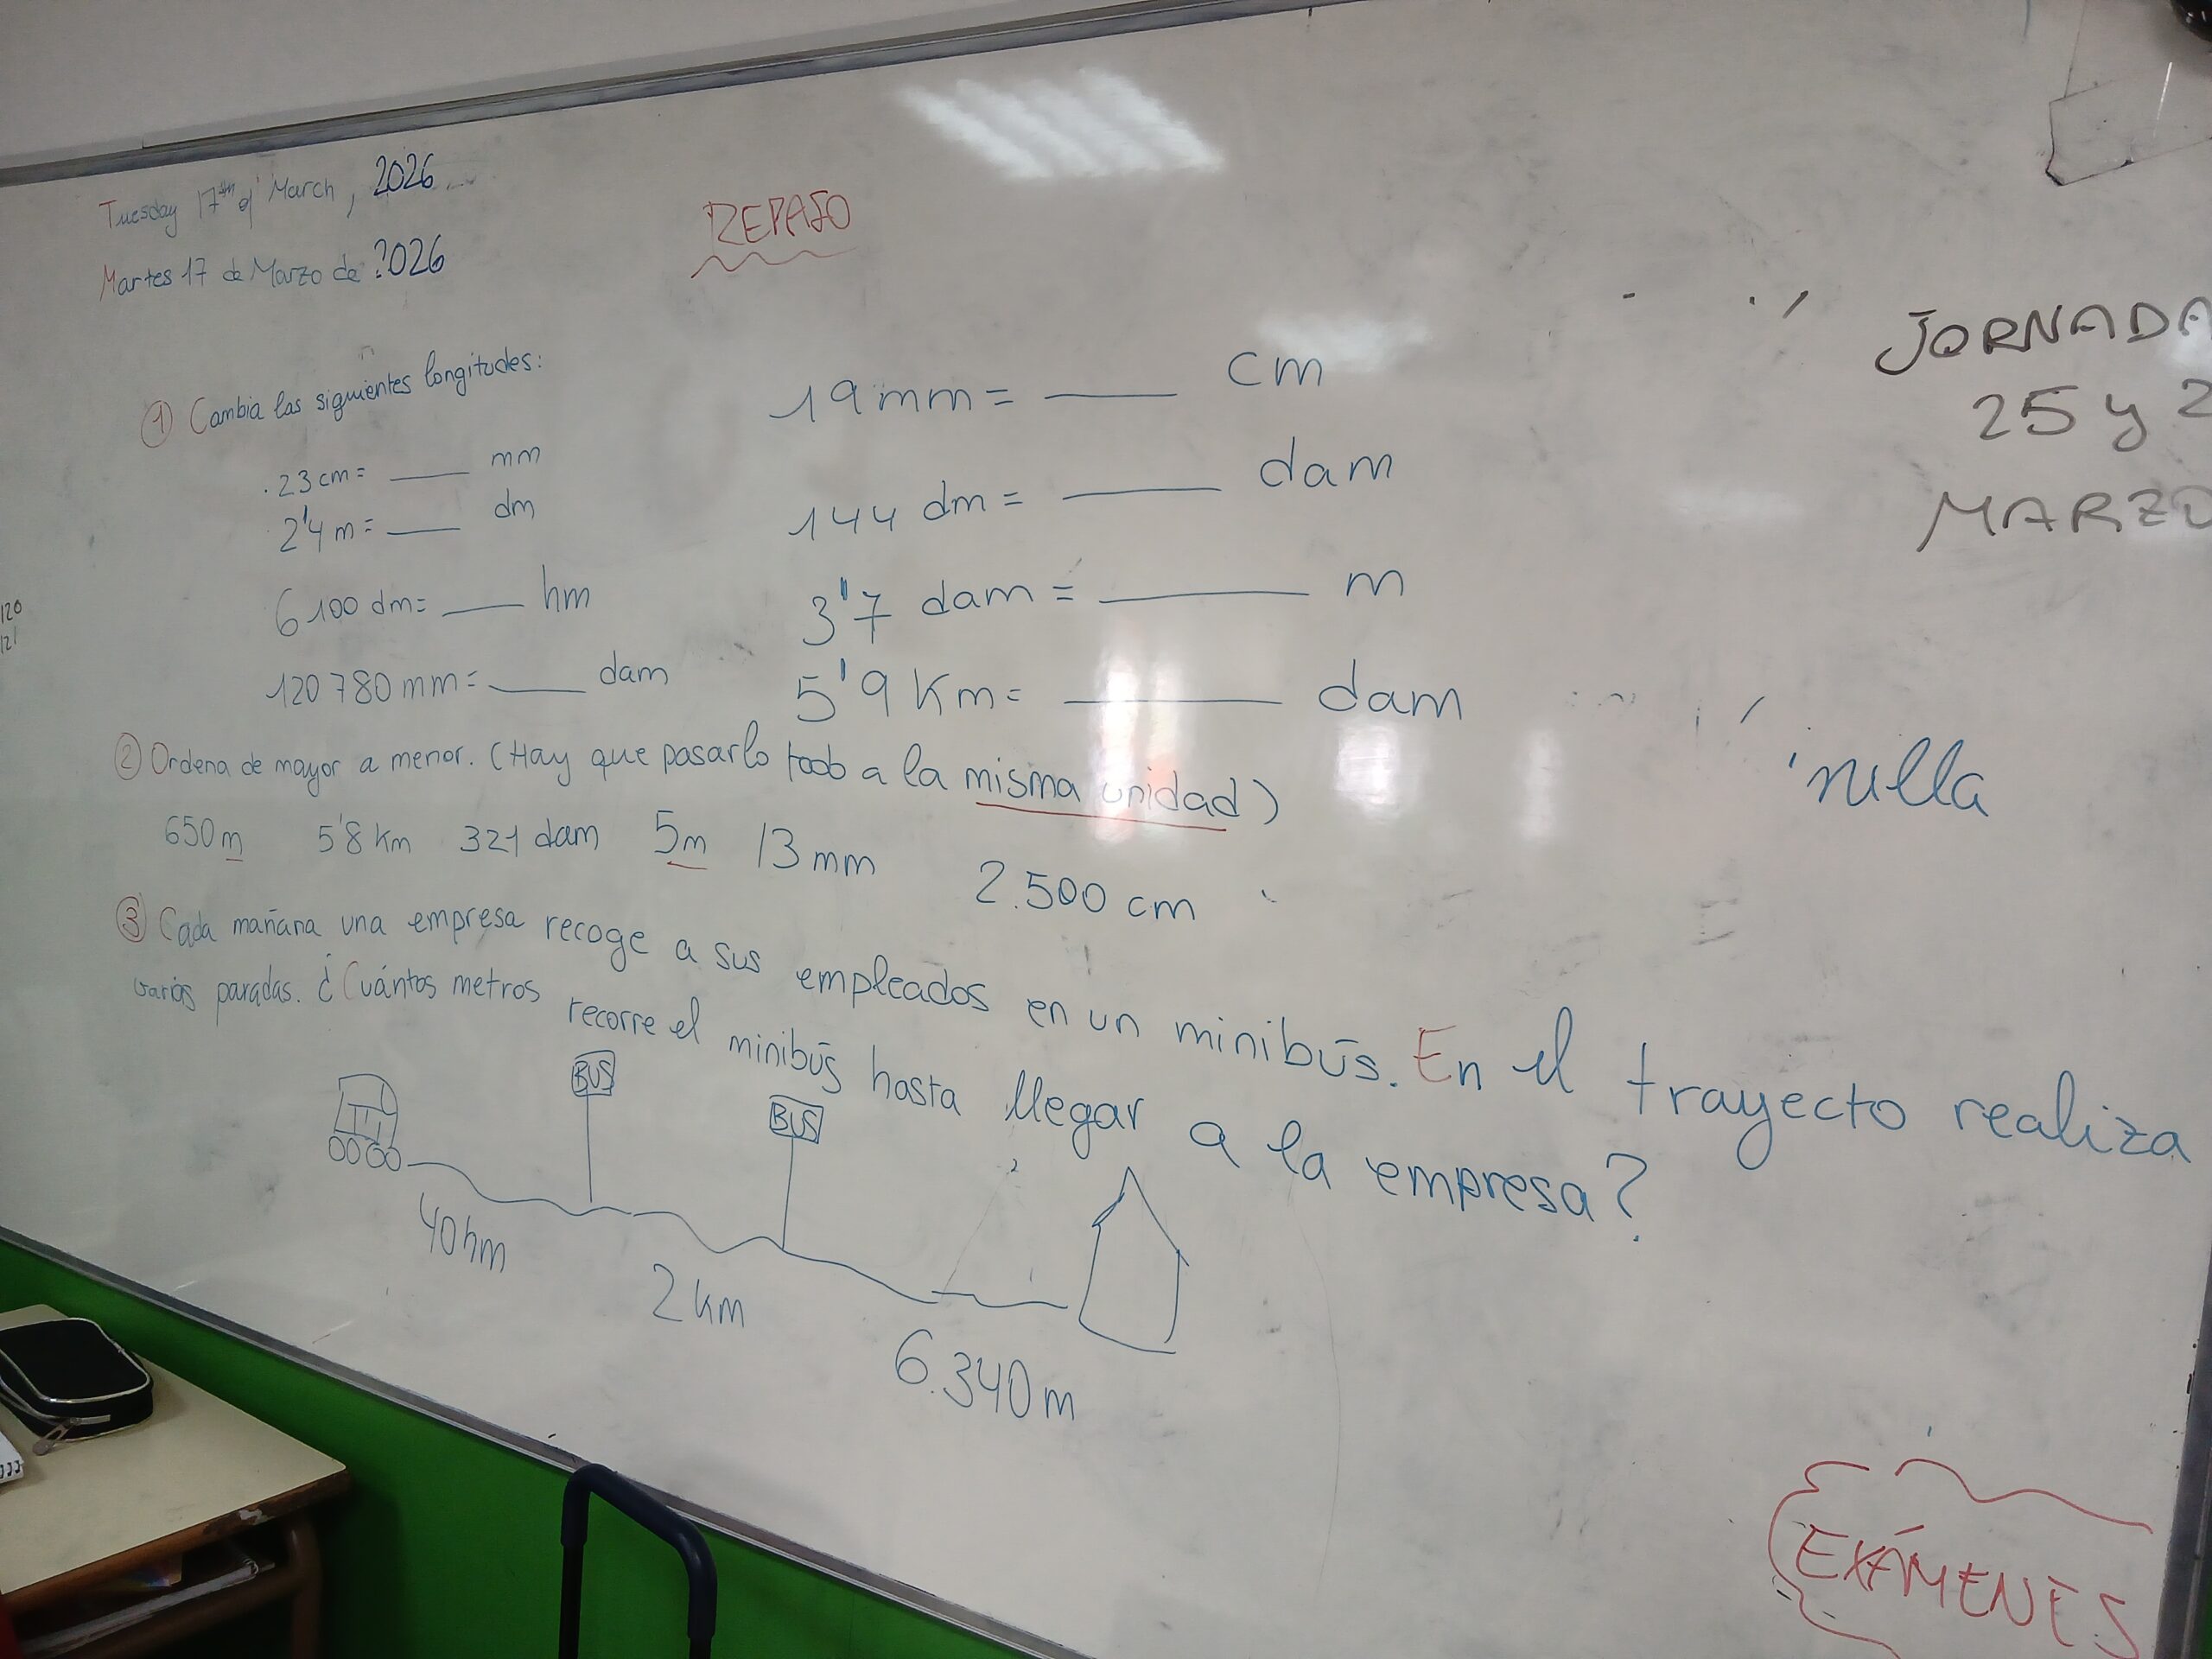 Tuesday 17th of March, 2026
Martes 17 de Marzo de 2026
REPASO
① Cambia las siguientes longitudes:
23 cm = ____ mm
2'4 m = ____ dm
6100 dm = ____ hm
120780 mm = ____ dam
19 mm = ____ cm
144 dm = ____ dam
3'7 dam = ____ m
5'9 Km = ____ dam
② Ordena de mayor a menor. (Hay que pasarlo todo a la misma unidad)
650 m 5'8 Km 321 dam 5m 13 mm 2.500 cm
③ Cada mañana una empresa recoge a sus empleados en un minibús. En el trayecto realiza
varias paradas. ¿Cuántos metros recorre el minibús hasta llegar a la empresa?
BUS
BUS
40 hm
2 km
6.340 m
JORNADA
25 y 2
MARZO
nilla
EXÁMENES
120
121